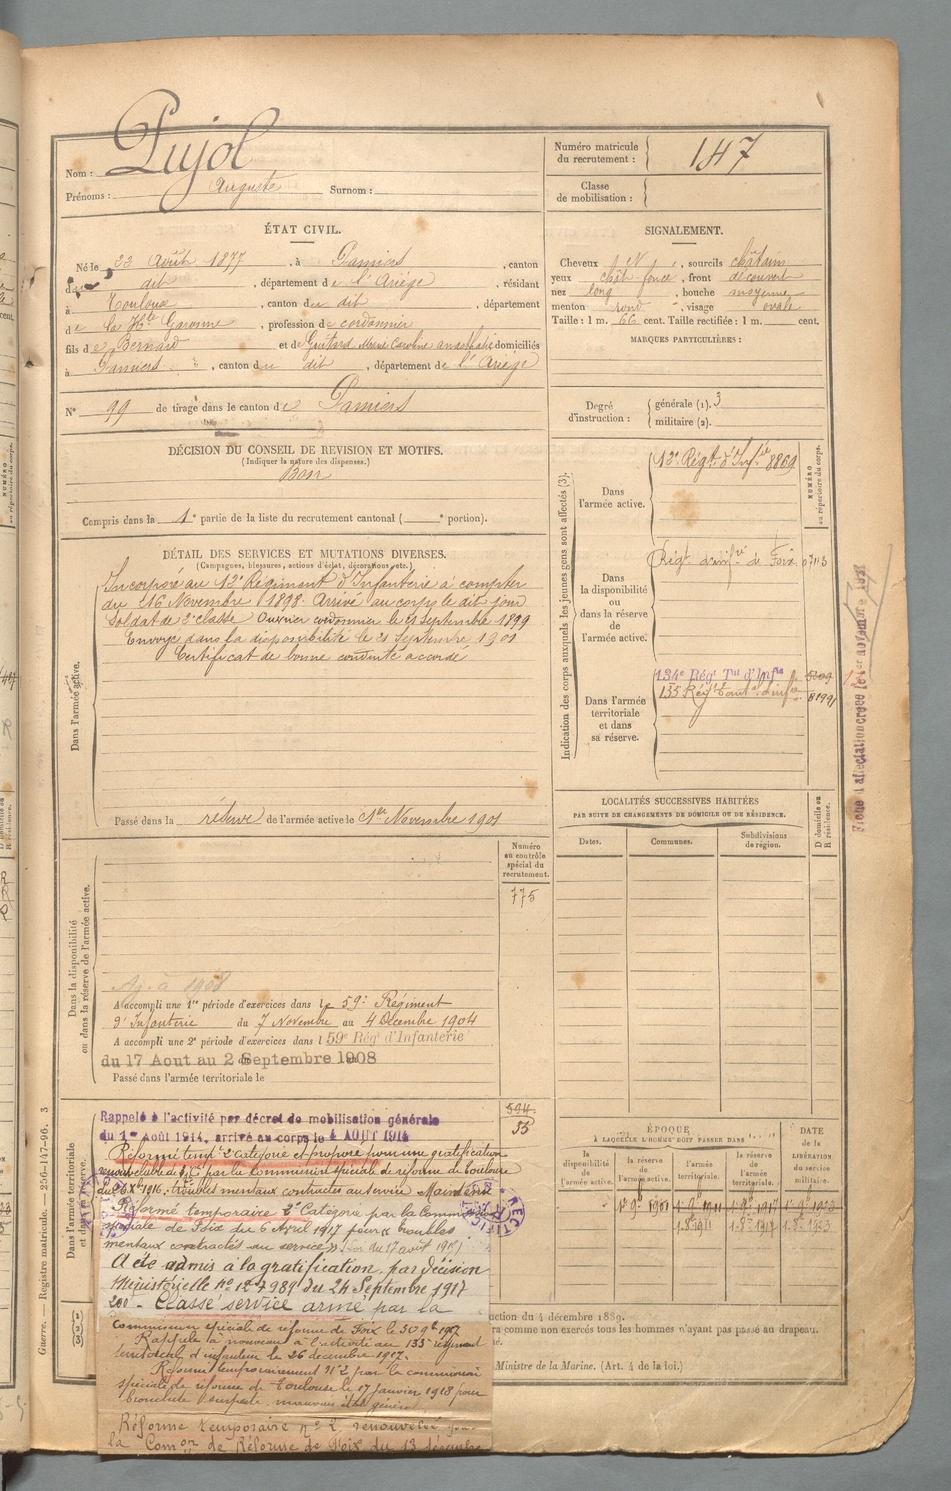 Nom : Pujol
Prénoms : Auguste Surnom :
Numéro matricule
du recrutement : 147
Classe
de mobilisation :
ÉTAT CIVIL.
Né le 22 Août 1877, à Pamiers, canton
du dit, département de l'Ariège, résidant
à Toulouse, canton du dit, département
de la Hte Garonne, profession de cordonnier
fils de Bernard et de Guitard Marie Caroline domiciliés
à Pamiers, canton du dit, département de l'Ariège
N° 99 de tirage dans le canton de Pamiers
SIGNALEMENT.
Cheveux N, sourcils châtains
yeux chât-foncé, front découvert
nez long, bouche moyenne
menton rond, visage ovale
Taille : 1 m. 66 cent. Taille rectifiée : 1 m. cent.
MARQUES PARTICULIÈRES :
Degré
d'instruction :
générale (1). 3
militaire (2).
DÉCISION DU CONSEIL DE REVISION ET MOTIFS.
(Indiquer la nature des dispenses.)
Bon
Compris dans la 1e partie de la liste du recrutement cantonal ( e portion).
Indication des corps auxquels les jeunes gens sont affectés (3).
NUMÉRO
au répertoire du corps.
Dans
l'armée active.
12e Régt d'Infie 8869
Dans
la disponibilité
ou
dans la réserve
de
l'armée active.
Régt d'infie de Foix 07113
Dans l'armée
territoriale
et dans
sa réserve.
134e Régt Tal d'Infie 5209
135 Régt territ d'infie 8199
DÉTAIL DES SERVICES ET MUTATIONS DIVERSES.
(Campagnes, blessures, actions d'éclat, décorations, etc.)
Dans l'armée active.
Incorporé au 12e Régiment d'Infanterie à compter
du 16 Novembre 1898. Arrivé au corps le dit jour
Soldat de 2e classe Ouvrier cordonnier le 21 Septembre 1899
Envoyé dans la disponibilité le 21 Septembre 1901
Certificat de bonne conduite accordé
Passé dans la réserve de l'armée active le 1er Novembre 1901
Fiche d'affectation créée le 1er novembre 1921
LOCALITÉS SUCCESSIVES HABITÉES
PAR SUITE DE CHANGEMENTS DE DOMICILE OU DE RÉSIDENCE.
Dates. Communes. Subdivisions
de région.
D domicile ou
R résidence.
Dans la disponibilité
ou dans la réserve de l'armée active.
Numéro
au contrôle
spécial du
recrutement.
775
A accompli une 1re période d'exercices dans le 59e Régiment
d'Infanterie du 7 Novembre au 4 Décembre 1904
A accompli une 2e période d'exercices dans l 59e Régt d'Infanterie
du 17 Aout au 2 Septembre 1908
Passé dans l'armée territoriale le
Dans l'armée territoriale
et dans sa réserve.
594
55
Rappelé à l'activité par décret de mobilisation générale
du 1er Août 1914, arrivé au corps le 4 AOUT 1914
Réformé tempre 2e Catégorie et proposé pour une gratification
renouvelable de par la Commission spéciale de réforme de Toulouse
du 26 Xbre 1916; troubles mentaux contractés au service Maintenu
Réformé temporaire 2e Catégorie par la Commission
spéciale de Foix du 6 Avril 1917 pour troubles
mentaux contractés au service
A été admis à la gratification par décision
Ministérielle no du 24 Septembre 1917
200 - Classé service armé par la
Commission spéciale de réforme de Foix le 30 9bre 1917
Rappelé à nouveau à l'activité au 135e régiment
territorial d'infanterie le 26 décembre 1917.
Réformé temporairement n°2 par la commission
spéciale de réforme de Toulouse le 17 janvier 1918 pour
bronchite suspecte, mauvais état général
Réforme temporaire n° 2 renouvelée par
la Comon de Réforme de Foix du 13 décembre
RECTIFICATION
ÉPOQUE
À LAQUELLE L'HOMME DOIT PASSER DANS
la
disponibilité
de
l'armée active.
la réserve
de
l'armée active.
l'armée
territoriale.
la réserve
de
l'armée
territoriale.
DATE
de la
LIBÉRATION
du service
militaire.
1er 9e 1901 1er 9e 1911 1er 9e 1917 1er 9e 1923
1.8bre 1911 1.8e 1917 1.8e 1923
ction du 4 décembre 1889.
ra comme non exercés tous les hommes n'ayant pas passé au drapeau.
Ministre de la Marine. (Art. 4 de la loi.)
Guerre. — Registre matricule. — 256-147-96. 3